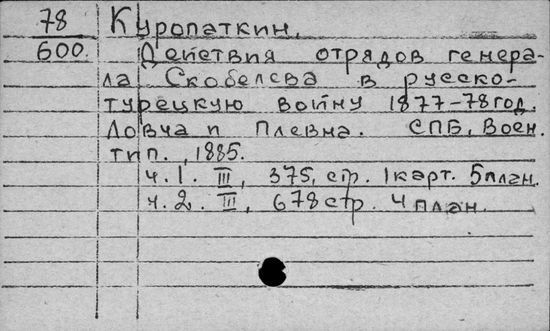 78 Куропаткин.
600. Действия отрядов генера-
ла Скобелева в русско-
турецкую войну 1877-78 год.
Ловча и Плевна. СПБ, Воен.
тип., 1885.
ч. 1. III, 375, стр. 1 карт. 5 план.
ч. 2. III, 678 стр. 4 план.